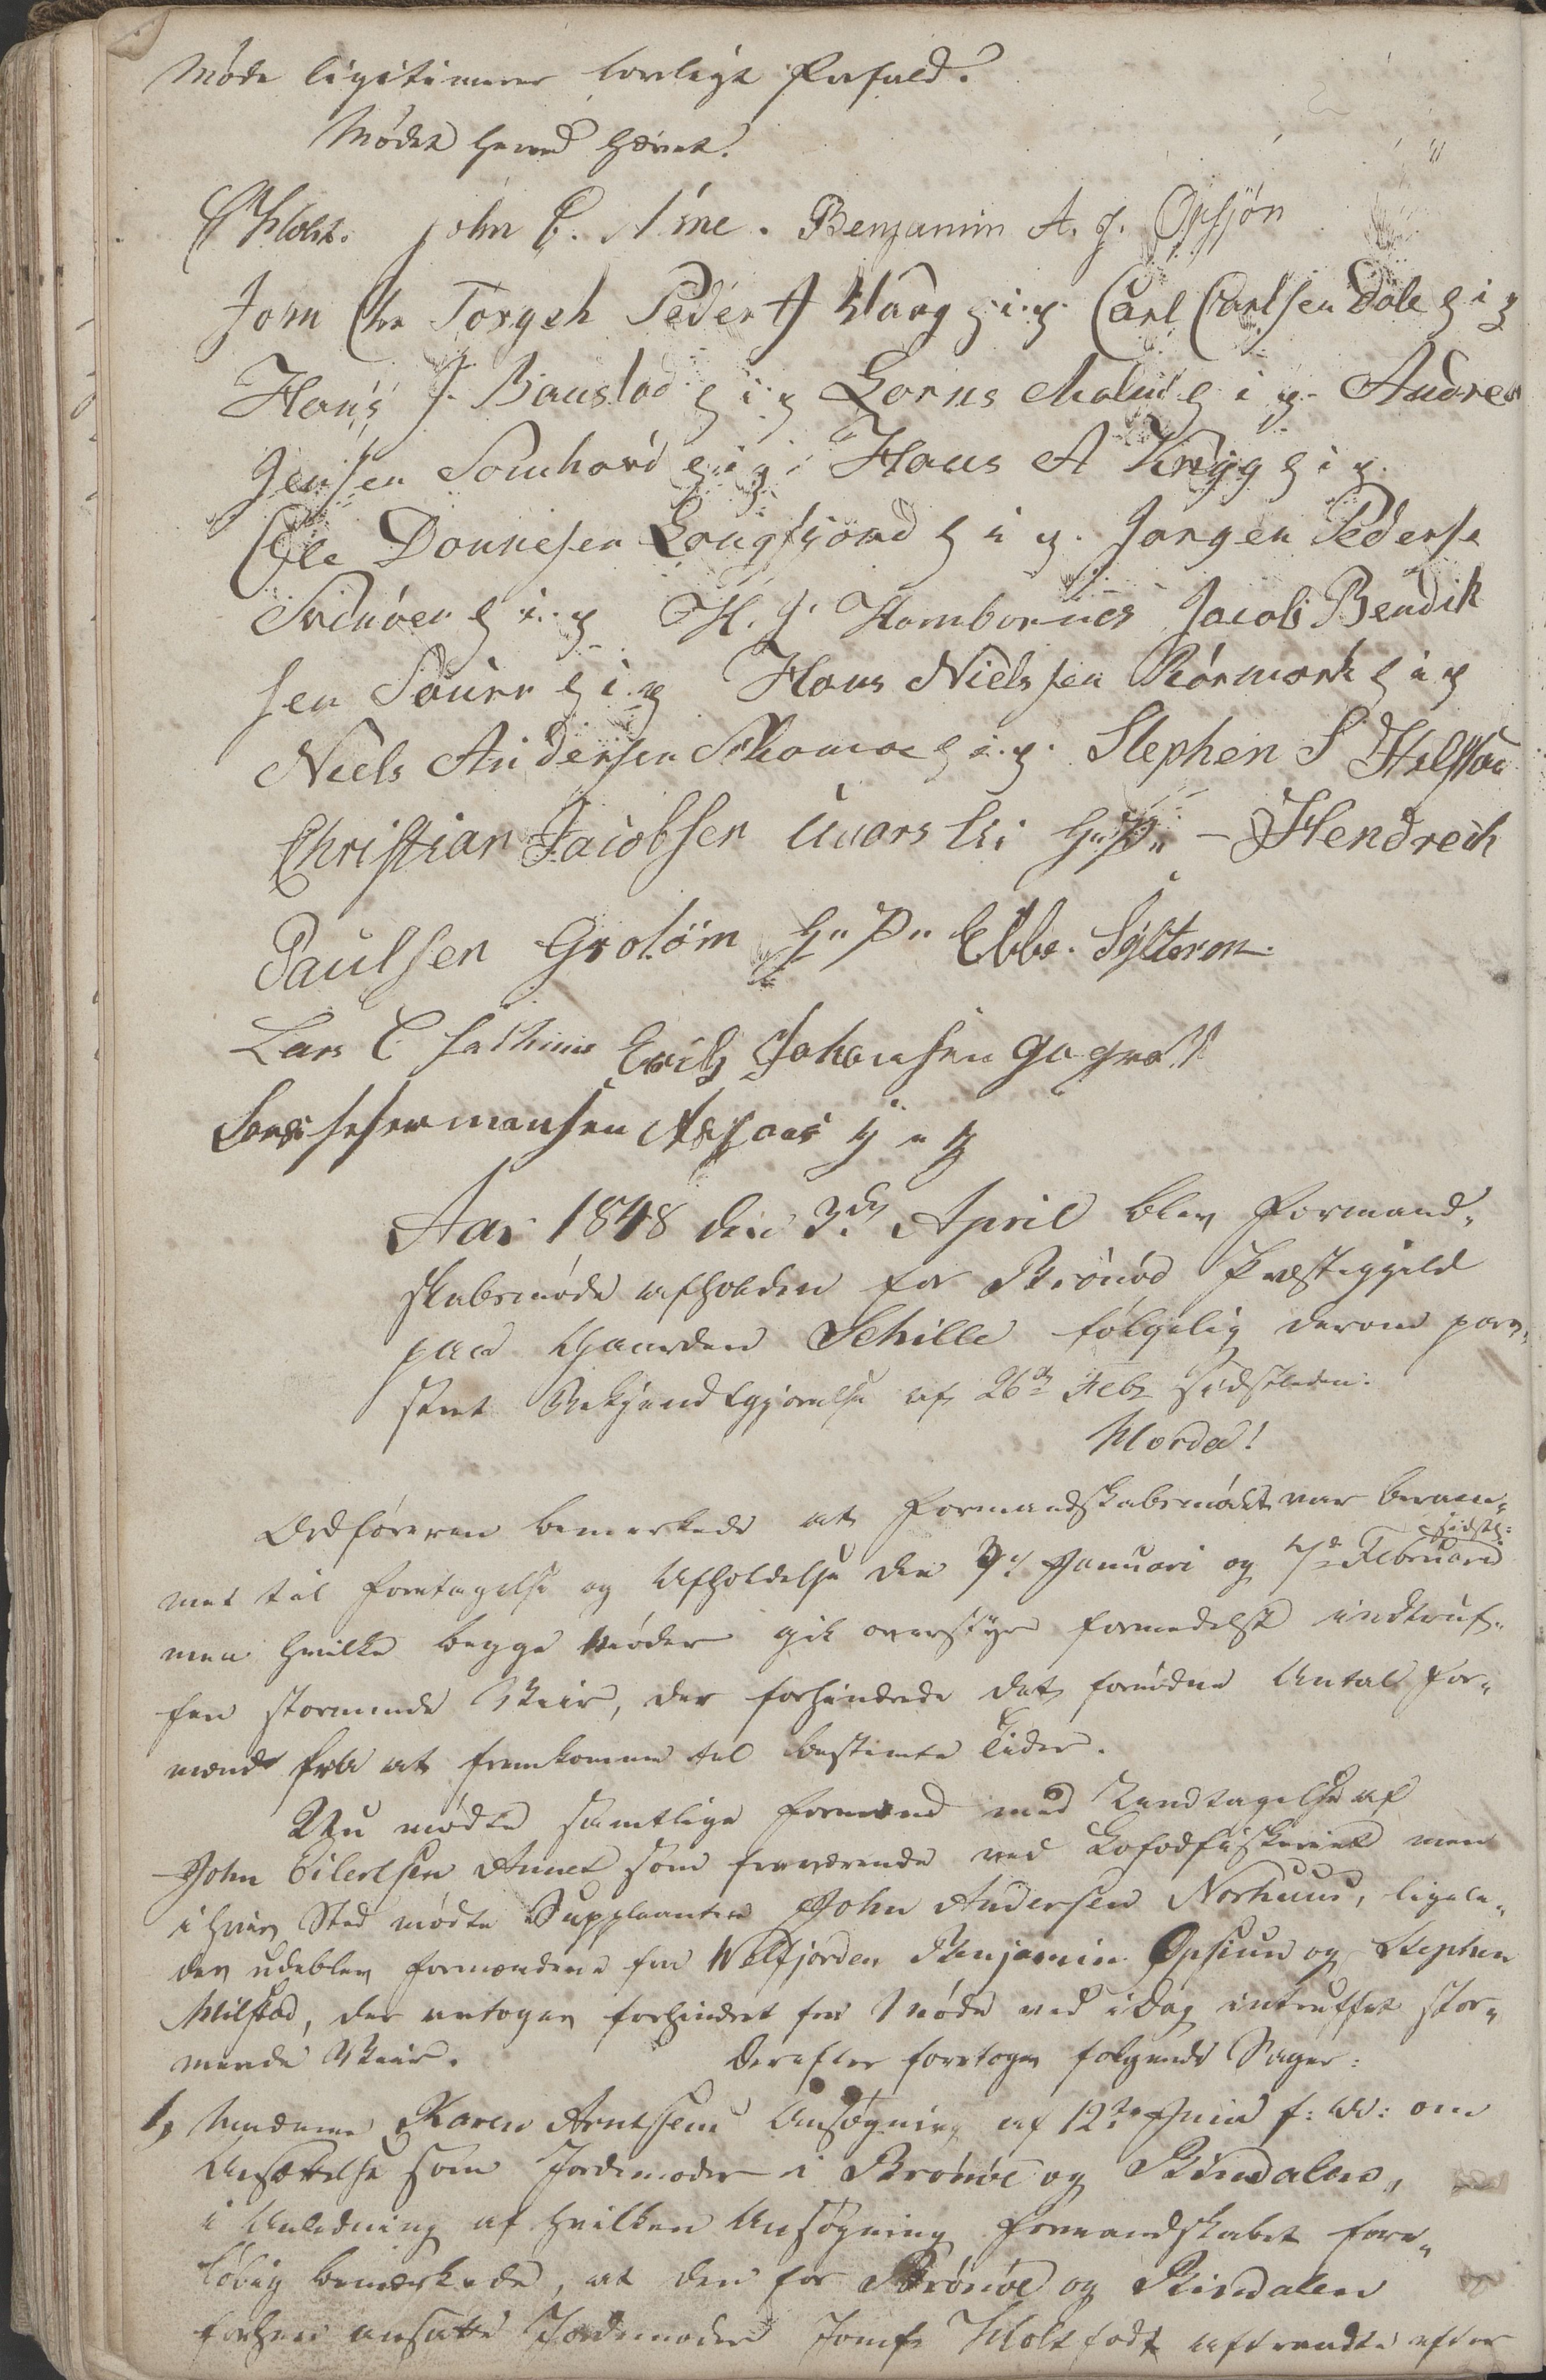 Møde ligitimerer lovligt Forfald.
Mødet herved hævet.
Holst. John E. Aune. Benjamin A. J. Opsjøn
Jom Chr Torgeh Peder A Haug h i p. Carl Carlsen Dale h i p
Hans J. Baustad h i p Lorns Malm h i p. Andrea
Jensen Somhovd h i p. Hans A Krygg h i p.
Ole Donnesen Langfjord h i p. Jorgen Pederse
Svinøen h i p H. J. Hambornes Jacob Bendik
sen Sauren h i p Hans Nielssen Rørmark h i p
Niels Andersen h i p. Stephen S Hilstad
Christian Jacobsen h. P. - Hendrech
Paulsen Grotøm h. P. Ebbe. Sylteren
Lars C Erich Johansen
Hermansen h i p
Aar 1848 den 3die April blev Formand-
skabsmøde afholden for Brønøe Præstegjeld
paa Gaarden Schille følgelig derom pas-
seret Bekjendtgjørelse af 26de Febr sidstleden.
Hvorda!
Ordføreren bemærkede at Formandskabsmødet var beram-
sidstl:
met til Foretagelse og Afholdelse den 3die Januari og 7de Februari
men hvilke begge Møder gik overstyr formedelst indtruf-
fen stormende Veir, der forhindrede det fornødne Antal For-
mænd fra at fremkomme til bestemte Tider.
Nu mødte samtlige Formænd med Undtagelse af
John Eilertsen Aunet som fraværende ved Lofodfiskeriet men
i hvis Sted mødte Suppleanten John Andersen Norhuus, ligele-
des udeblev Formændene fra Velfjorden Benjamin Opsiun og Stephen
Hilstad, der antoges forhindret fra Møde ved i Dag intruffet stor-
mende Veir. Derefter foretoges følgende Sager:
1, Madame Karen Arntsens Ansøgning af 12te Juni f: A: om
Ansættelse som Jordemoder i Brønøe og Bindalen,
i Anledning af hvilken Ansøgning Formandskabet fore-
løbig bemærkede, at den for Brønøe og Bindalen
forhen ansatte Jordemoder Jomfr Holt født aftraadte efter